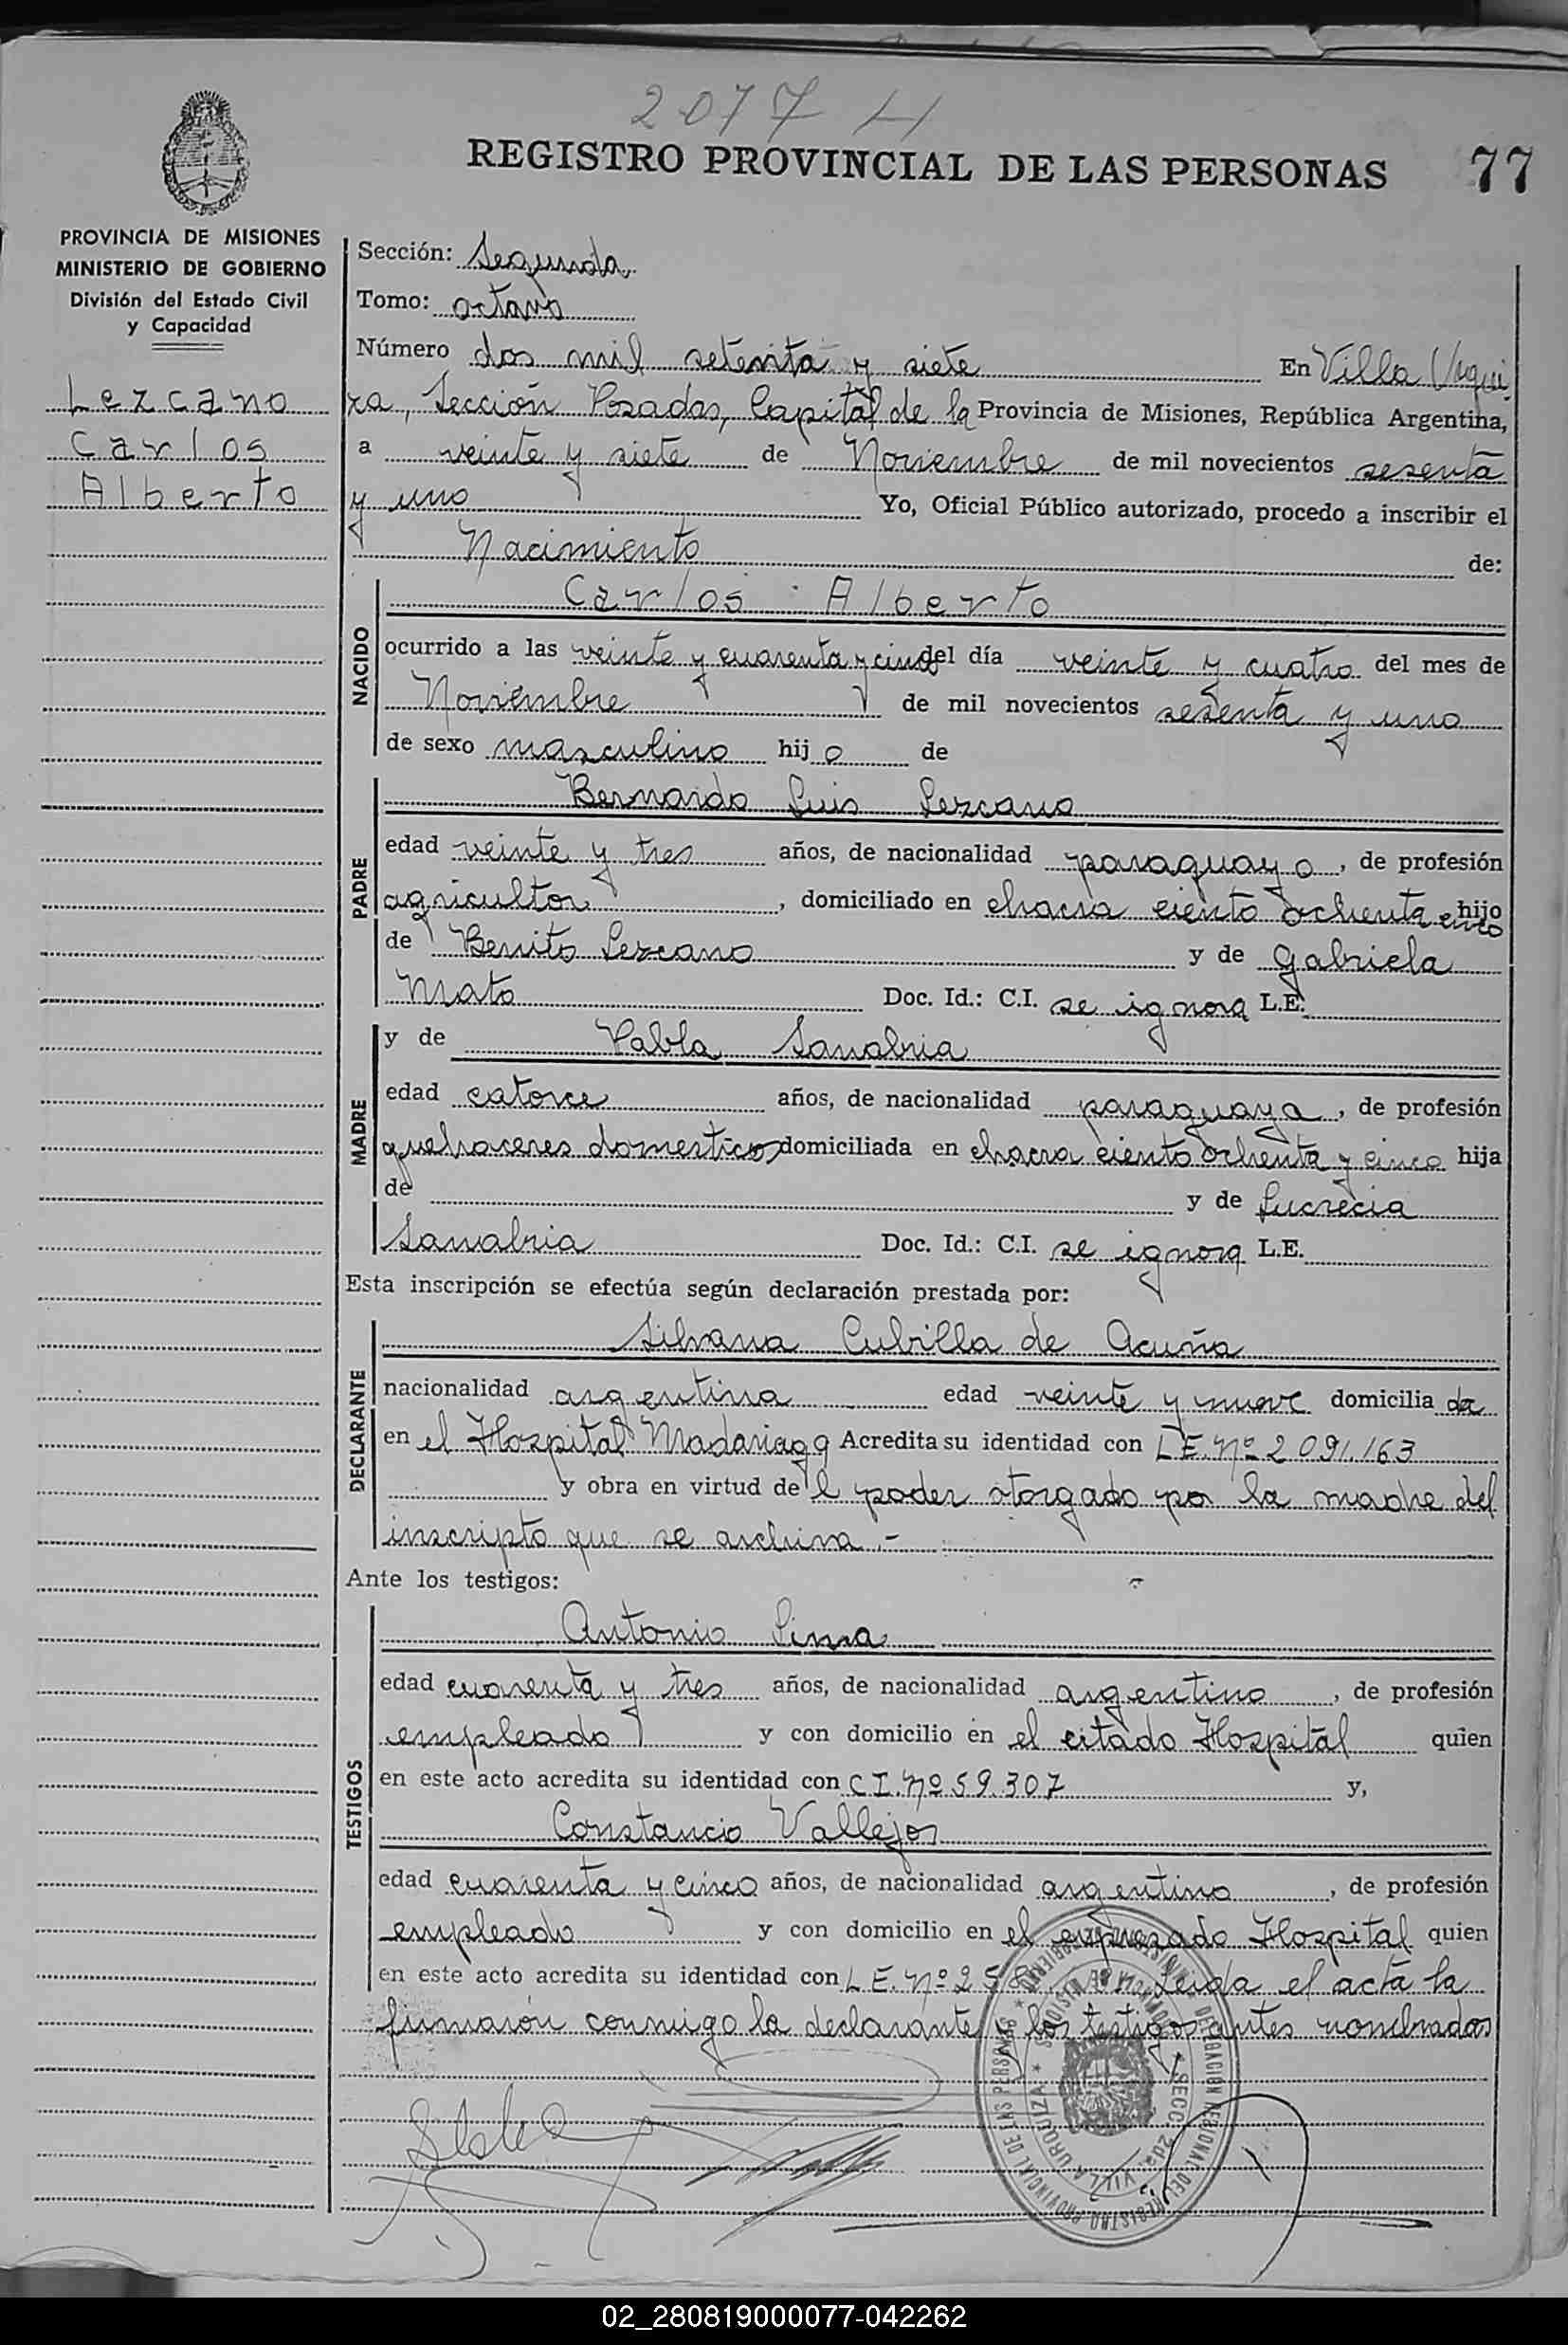 2077 H
REGISTRO PROVINCIAL DE LAS PERSONAS 77
PROVINCIA DE MISIONES
MINISTERIO DE GOBIERNO
División del Estado Civil
y Capacidad
Lezcano
Carlos
Alberto
Sección: Segunda
Tomo: octavo
Número dos mil setenta y siete En Villa Urqui
za, Sección Posadas, Capital de la Provincia de Misiones, República Argentina,
a veinte y siete de Noviembre de mil novecientos sesenta
y uno Yo, Oficial Público autorizado, procedo a inscribir el
Nacimiento de:
NACIDO
Carlos Alberto
ocurrido a las veinte y cuarenta y cinco del día veinte y cuatro del mes de
Noviembre de mil novecientos sesenta y uno
de sexo masculino hijo de
PADRE
Bernardo Luis Lezcano
edad veinte y tres años, de nacionalidad paraguayo, de profesión
agricultor, domiciliado en chacra ciento ochenta cinco hijo
de Benito Lezcano y de Gabriela
Mato Doc. Id.: C.I. se ignora L.E.
MADRE
y de Pabla Sanabria
edad catorce años, de nacionalidad paraguaya, de profesión
quehaceres domestico, domiciliada en chacra ciento ochenta y cinco hija
de y de Lucrecia
Sanabria Doc. Id.: C.I. se ignora L.E.
Esta inscripción se efectúa según declaración prestada por:
DECLARANTE
Silvana Cubilla de Acuña
nacionalidad argentina edad veinte y nueve domiciliada
en el Hospital Madariaga Acredita su identidad con L.E. Nº 2091.163
y obra en virtud del poder otorgado por la madre del
inscripto que se archiva.-
Ante los testigos:
TESTIGOS
Antonio Lima
edad cuarenta y tres años, de nacionalidad argentino, de profesión
empleado y con domicilio en el citado Hospital quien
en este acto acredita su identidad con C.I. Nº 59.307 y,
Constancio Vallejos
edad cuarenta y cinco años, de nacionalidad argentino, de profesión
empleado y con domicilio en el expresado Hospital quien
en este acto acredita su identidad con L.E. Nº Leida el acta la
firmarón conmigo la declarante y los testigos antes nombrados
02_280819000077-042262